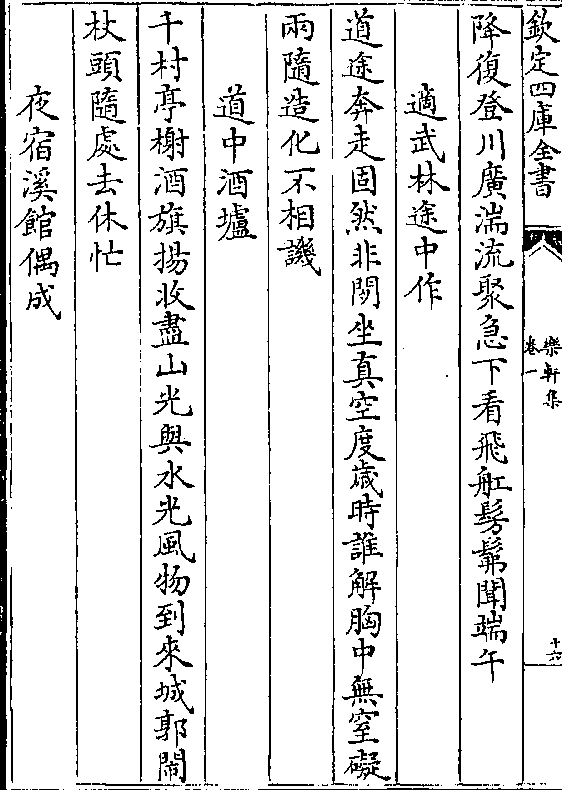 欽定四庫全書
樂軒集
卷一
十六
降復登川廣湍流聚急下看飛舡髣髴聞端午
適武林途中作
道途奔走固然非閉坐真空度歲時誰解胸中無窒礙
兩隨造化不相譏
道中酒壚
千村亭榭酒旗揚收盡山光與水光風物到來城郭鬧
杖頭隨處去休忙
夜宿溪館偶成